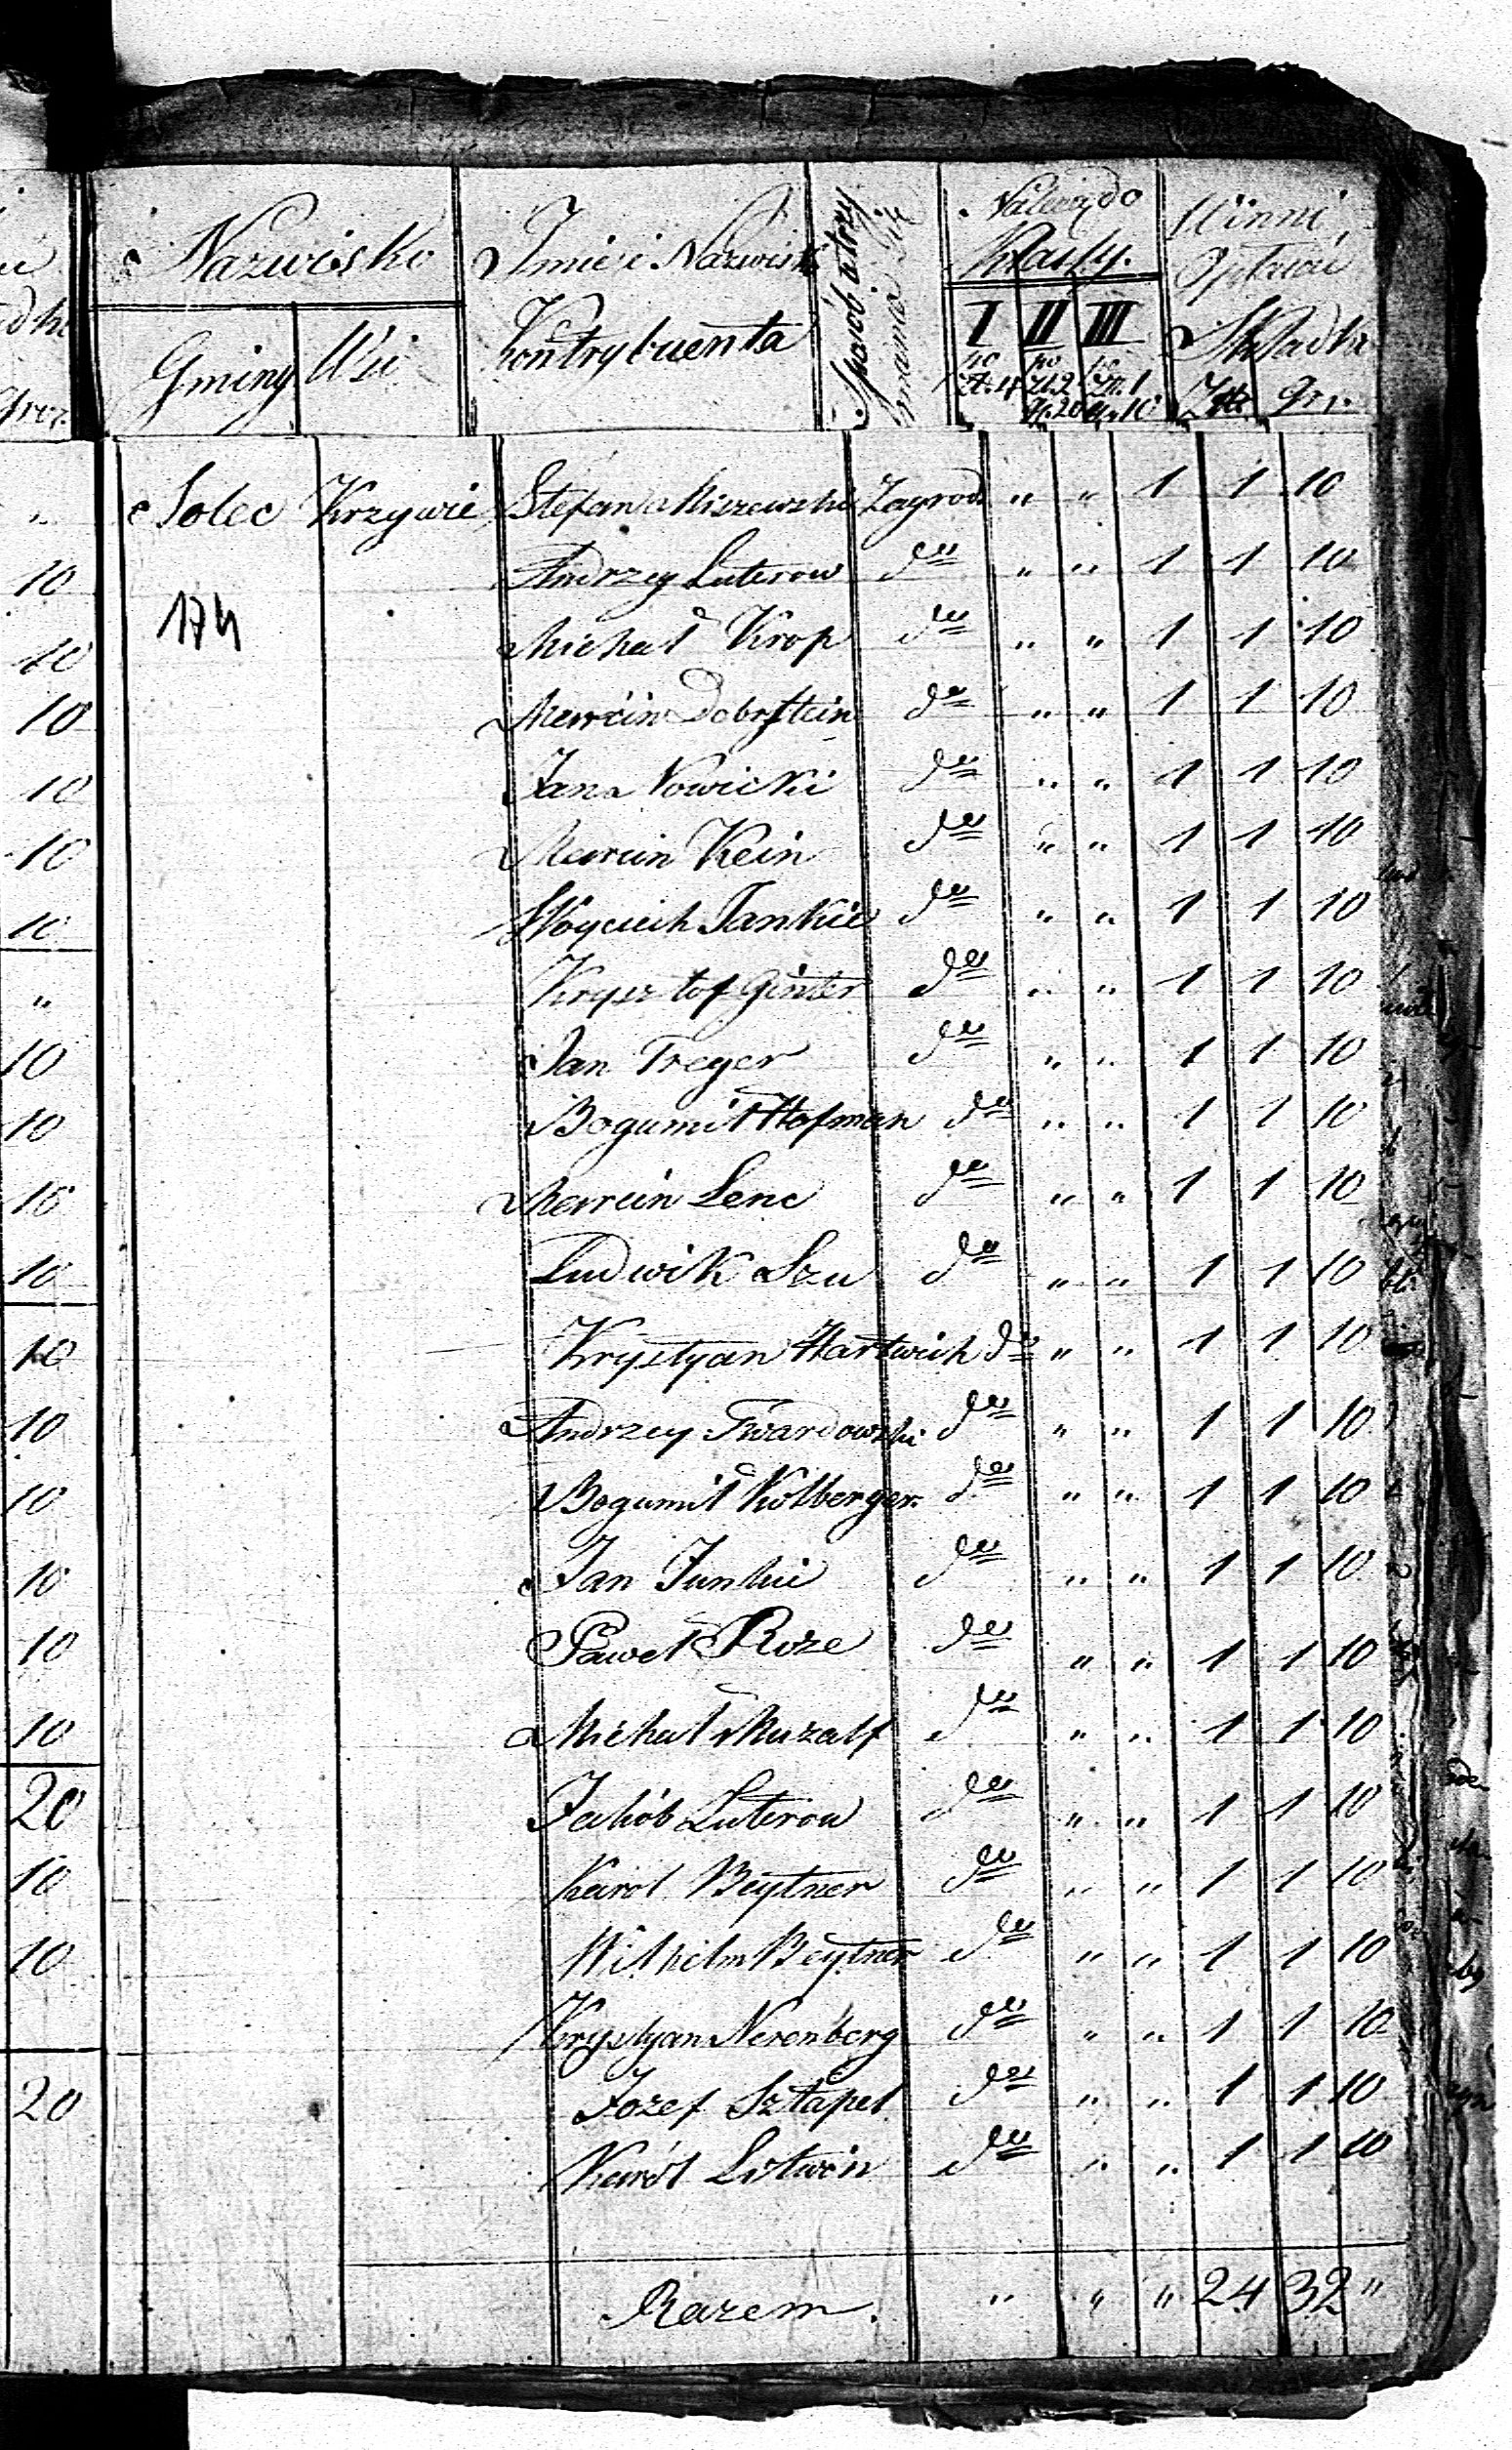 Nazwisko
Gminy Wsi
Imie i Nazwisk
Kontrybuenta
Sposób utrzy
mania się
Należy do
Klassy.
I II III
po po po
Zł. 4 Zł. 2 Zł. 1
gr. 20 gr. 10
Winni
Opłacać
Składki
Złt gr.
Solec Krzywie Stefan Miszewski Zagrod. " " 1 1 10
Andrzey Luterow dto " " 1 1 10
174
Michał Krop dto " " 1 1 10
Marcin Dobrsztein dto " " 1 1 10
Jan Nowicki dto " " 1 1 10
Marcin Kein dto " " 1 1 10
Woyciech Jankie dto " " 1 1 10
Krysztof Ginter dto " " 1 1 10
Jan Treger dto " " 1 1 10
Bogumił Hofman dto " " 1 1 10
Marcin Lenc dto " " 1 1 10
Ludwik Szu dto " " 1 1 10
Krystyan Hartwich dto " " 1 1 10
Andrzey Twardowski dto " " 1 1 10
Bogumił Kolberger dto " " 1 1 10
Jan Junkie dto " " 1 1 10
Paweł Roze dto " " 1 1 10
Michał Muzalf dto " " 1 1 10
Jakób Luterow dto " " 1 1 10
Karol Beytner dto " " 1 1 10
Wilhelm Beytner dto " " 1 1 10
Krystyan Nerenberg dto " " 1 1 10
Jozef Sztapel dto " " 1 1 10
Karól Litwin dto " " 1 1 10
Razem. " " " 24 32 "